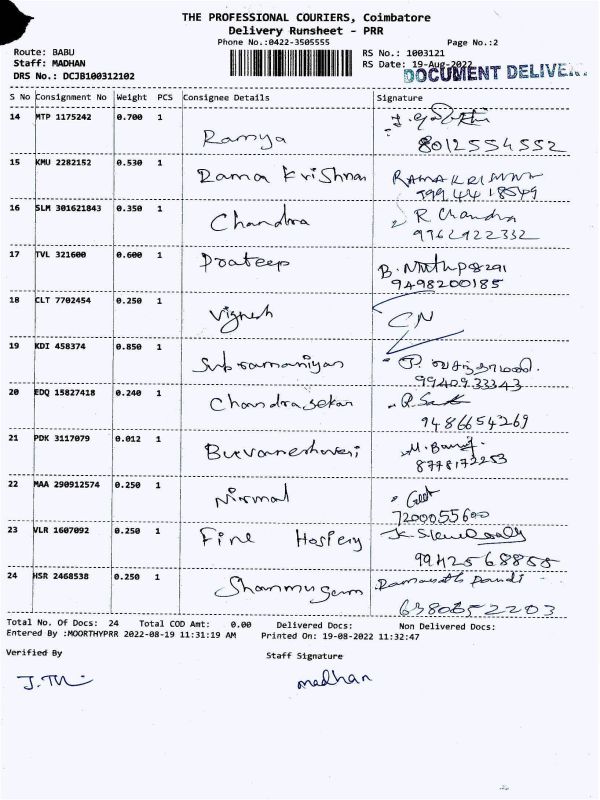 THE PROFESSIONAL COURIERS, Coimbatore
Delivery Runsheet - PRR
Phone No.:0422-3505555 Page No.:2
Route: BABU RS No.: 1003121
Staff: MADHAN RS Date: 19-Aug-2022
DRS No.: DCJB100312102 DOCUMENT
S No Consignment No Weight PCS Consignee Details Signature
14 MTP 1175242 0.700 1
Ramya 8012554552
15 KMU 2282152 0.530 1
Rama krishnan RAMAKRISHNAN
16 SLM 301621843 0.350 1
Chandra R Chandra
9762922332
17 TVL 321600 0.600 1
Prateep
9498200185
18 CLT 7702454 0.250 1
Vignesh CN
19 KDI 458374 0.850 1
Subramaniyan
9940933343
20 EDQ 15827418 0.240 1
Chandrasekar
9486654269
21 PDK 3117079 0.012 1
Buvaneshwari
8778172253
22 MAA 290912574 0.250 1
Nirmal
7200055600
23 VLR 1607092 0.250 1
Fine Hosiery
9942568858
24 HSR 2468538 0.250 1
Shanmugam
6380652203
Total No. Of Docs: 24 Total COD Amt: 0.00 Delivered Docs: Non Delivered Docs:
Entered By :MOORTHYPRR 2022-08-19 11:31:19 AM Printed On: 19-08-2022 11:32:47
Verified By Staff Signature
madhan